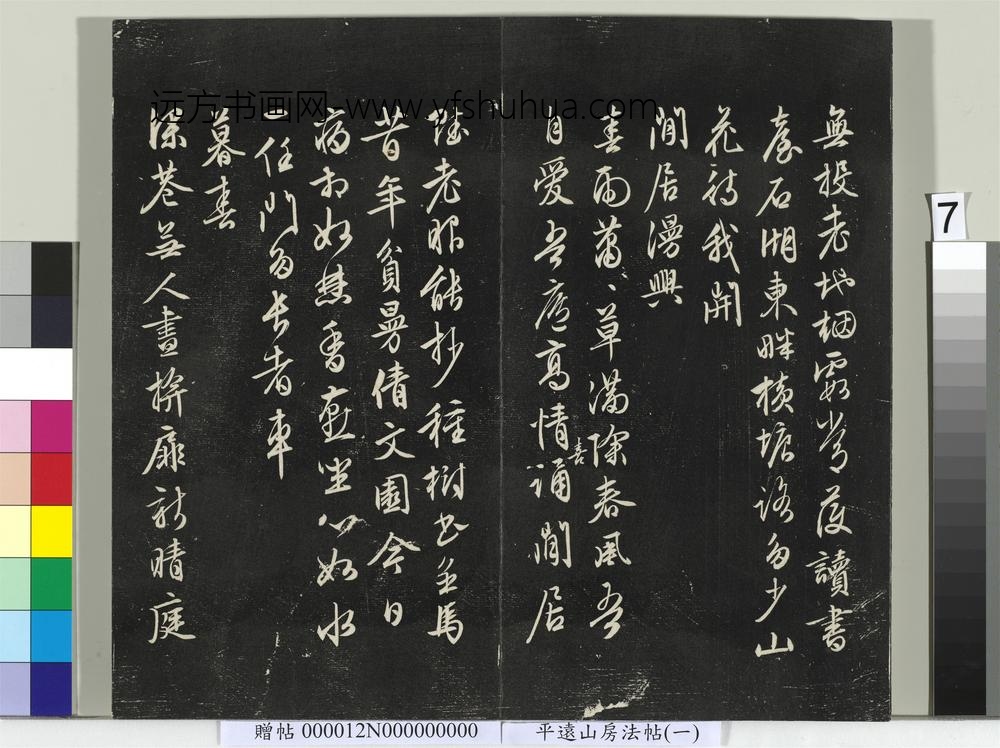 远方书画网-www.yfshuhua.com
無投老地烟霞常護讀書
臺石湖東畔橫塘路多少山
花待我開
閒居漫興
春雨蕭〻草滿除春風吾
自愛吾廬高情喜誦閒居
賦老眼能抄種樹書金馬
昔年貧曼倩文園今日
病相如焚香燕坐心如水
一任門多長者車
暮春
深巷無人晝揜扉新晴庭
7
贈帖 000012N000000000
平遠山房法帖(一)